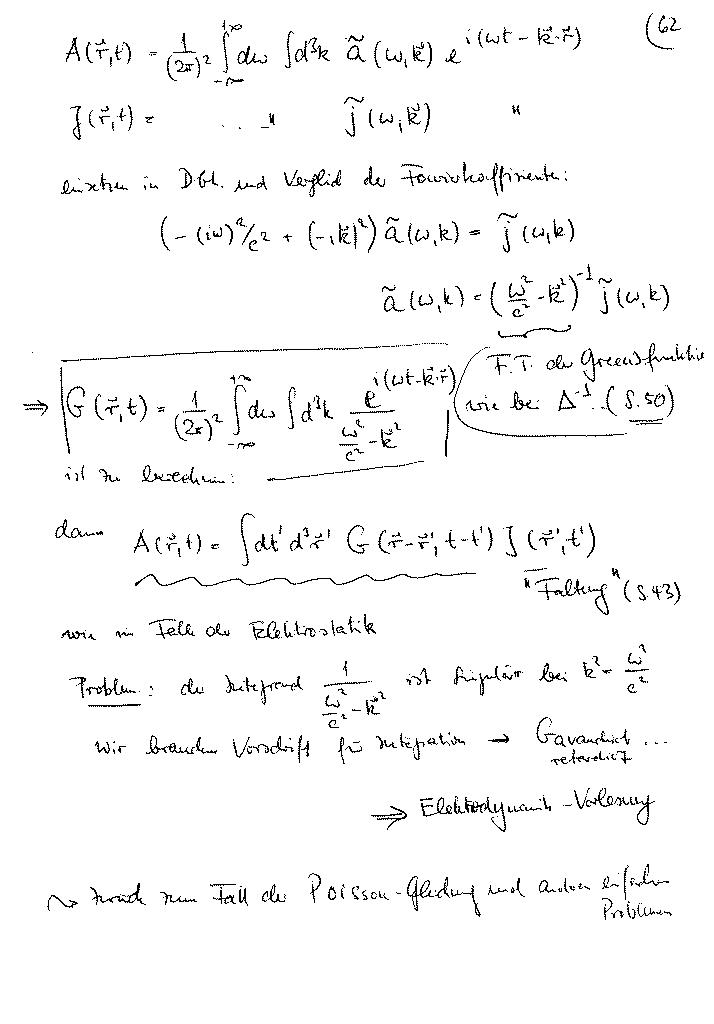 (62
A(r⃗,t) = 1/(2π)² ∫_{-∞}^{+∞} dω ∫d³k ã(ω,k⃗) e^{i(ωt - k⃗·r⃗)}
J(r⃗,t) = .. -"- j̃(ω,k⃗) "
einsetzen in DGl. und Vergleich der Fourierkoeffizienten:
(-(iω)²/c² + (-|k|²)) ã(ω,k) = j̃(ω,k)
ã(ω,k) = (ω²/c² - k⃗²)⁻¹ j̃(ω,k)
F.T. der Greensfunktion
wie bei Δ⁻¹.. (S.50)
⇒ G(r⃗,t) = 1/(2π)² ∫_{-∞}^{+∞} dω ∫d³k e^{i(ωt-k⃗·r⃗)} / (ω²/c² - k⃗²)
ist zu berechnen:
dann A(r⃗,t) = ∫dt' d³r⃗' G(r⃗-r⃗', t-t') J(r⃗',t')
"Faltung" (S 43)
wie im Falle der Elektrostatik
Problem: der Integrand 1/(ω²/c² - k⃗²) ist singulär bei k² = ω²/c²
Wir brauchen Vorschrift für Integration → G avanciert ...
retardiert
⇒ Elektrodynamik-Vorlesung
↝ zurück zum Fall der Poisson-Gleichung und anderen einfachen
Problemen